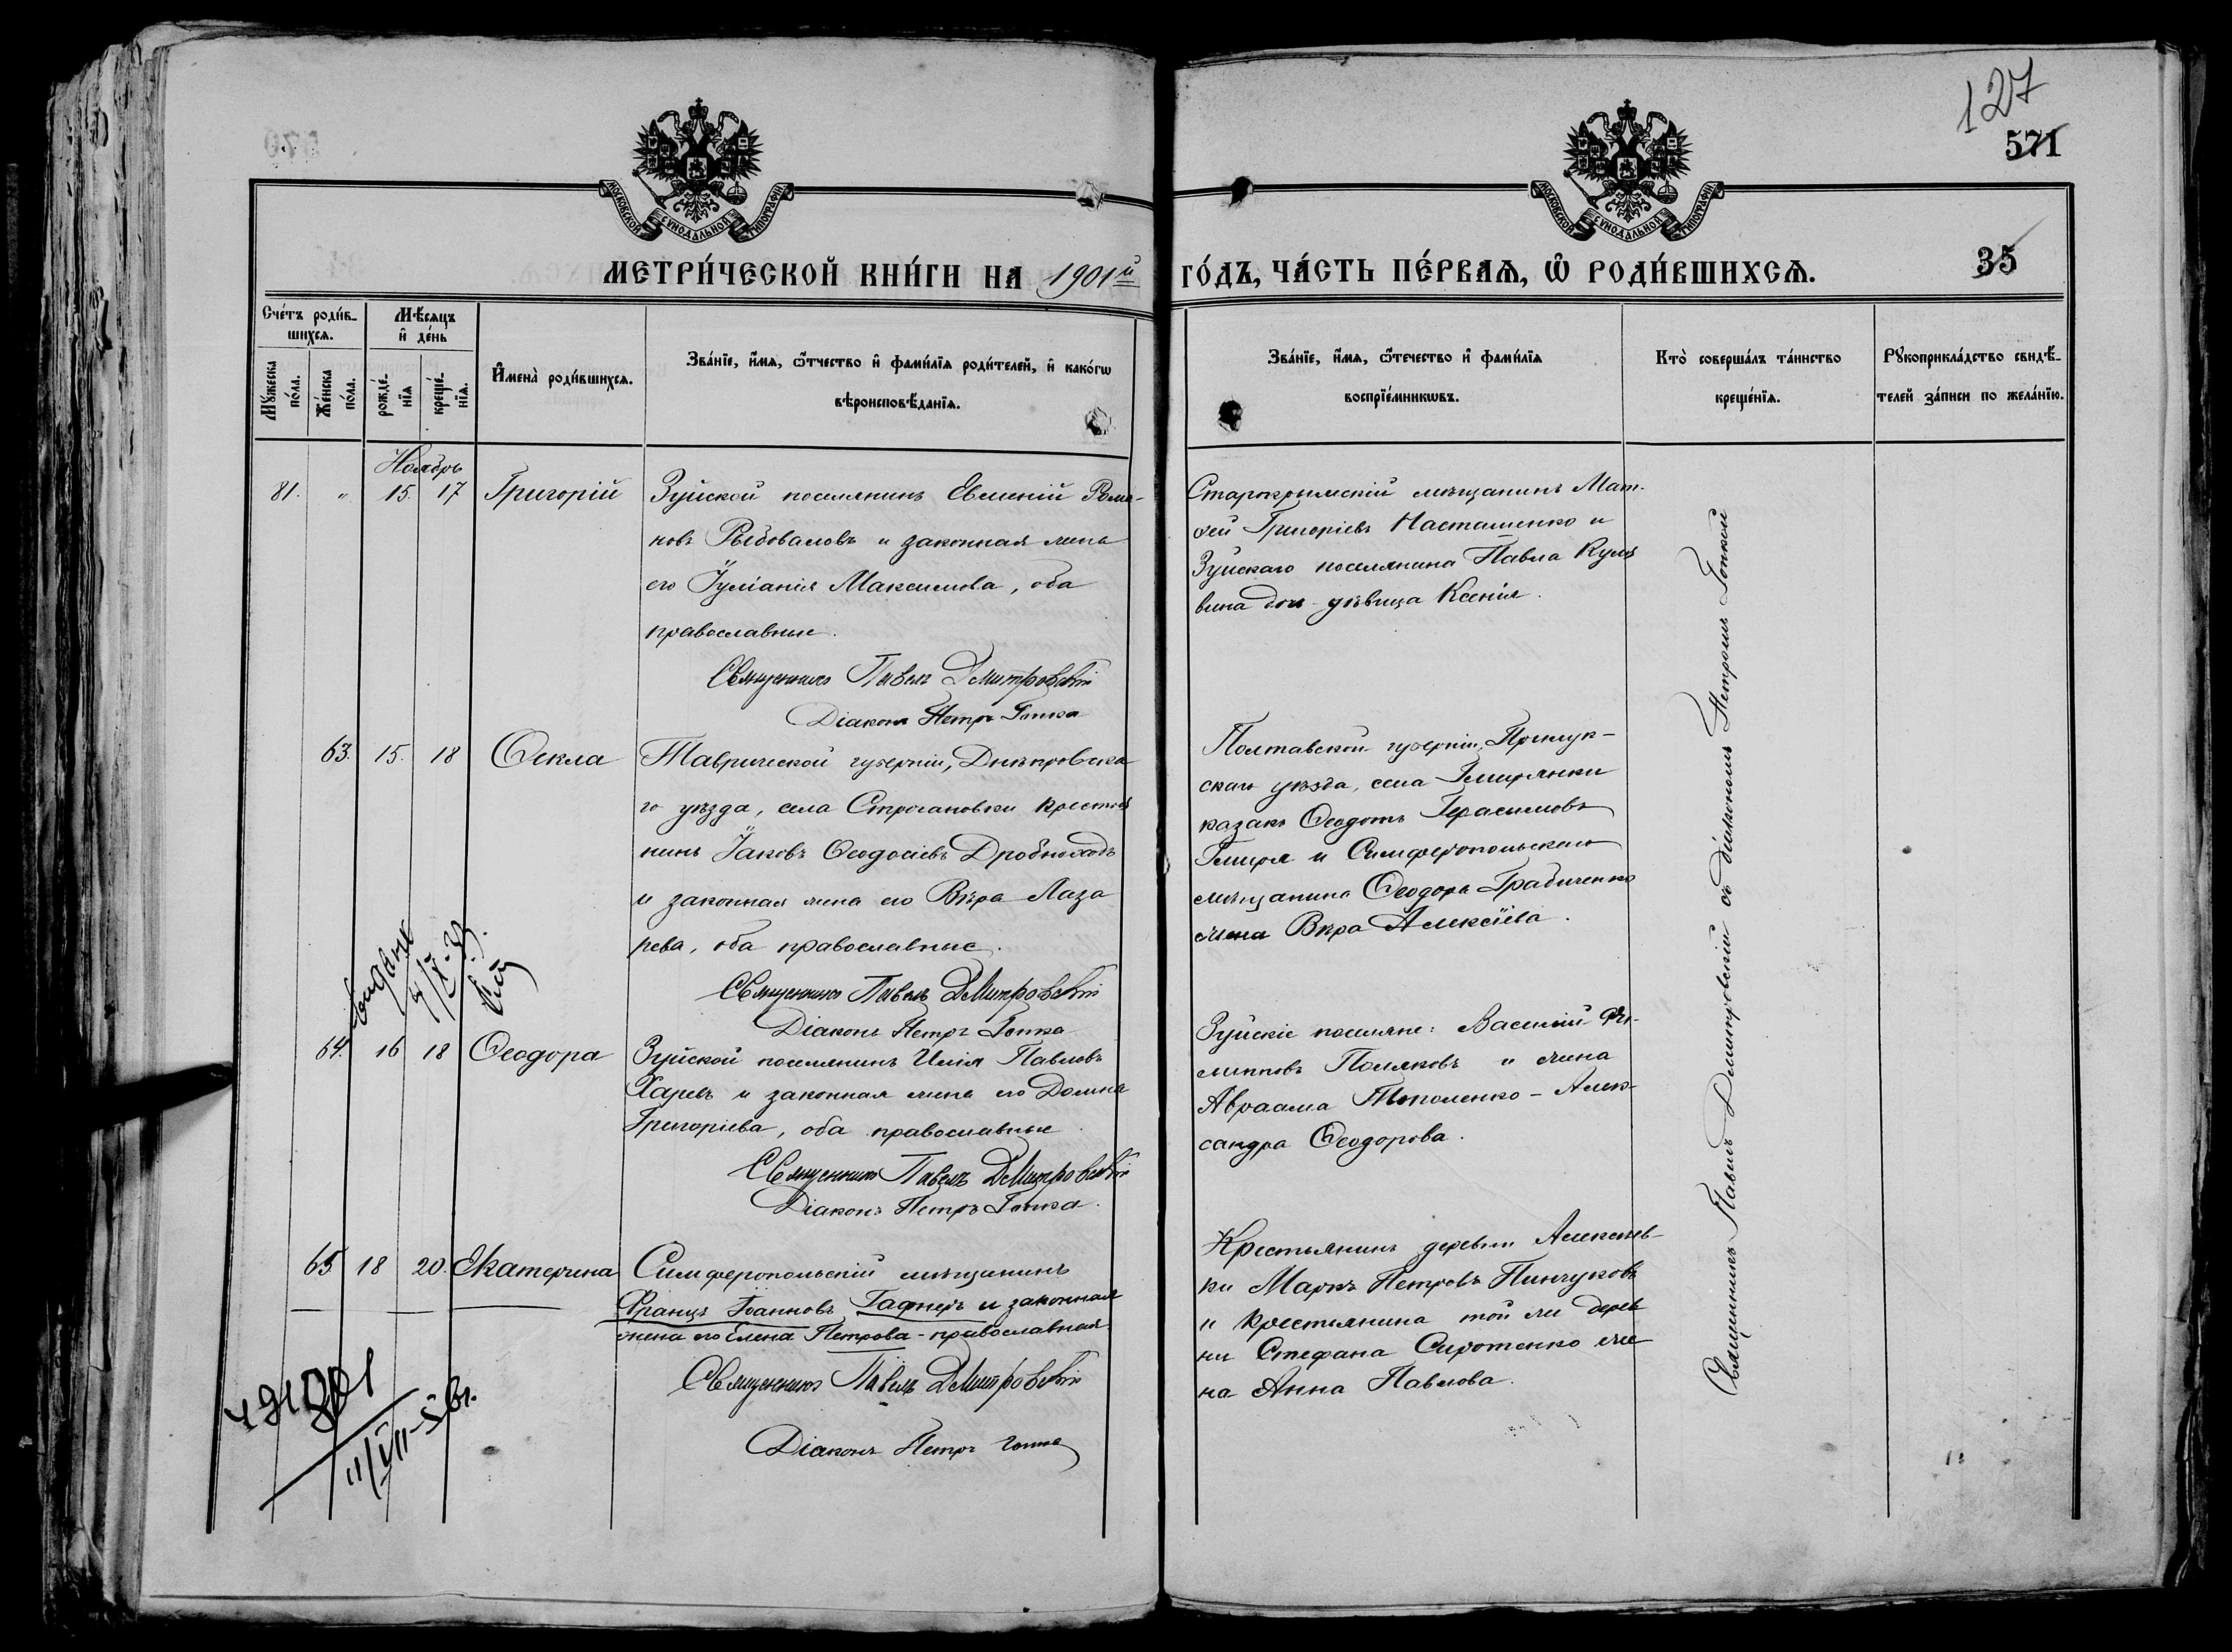 127
571
МОСКОВСКОЙ СѴНОДАЛЬНОЙ ТИПОГРАФІИ
МОСКОВСКОЙ СѴНОДАЛЬНОЙ ТИПОГРАФІИ
МЕТРИ́ЧЕСКОЙ КНИ́ГИ НА 1901й
ГО́ДЪ, ЧА́СТЬ ПЕ́РВАѦ, Ѡ҆ РОДИ́ВШИХСѦ.
35
Сче́тъ роди́в-
шихсѧ.
Мѣ́сѧцъ
и҆ де́нь
Мꙋ́жеска
по́ла.
Же́нска
по́ла.
рожде́-
нїѧ
креще́-
нїѧ.
И҆мена̀ роди́вшихсѧ.
Зва́нїе, и҆́мѧ, ѻ҆́тчество и҆ фами́лїѧ роди́телей, и҆ како́гѡ
вѣроисповѣ́данїѧ.
Зва́нїе, и҆́мѧ, ѻ҆́течество и҆ фами́лїѧ
воспрїе́мникѡвъ.
Кто̀ соверша́лъ та́инство
креще́нїѧ.
Рꙋкоприкла́дство свидѣ́-
телей за́писи по жела́нїю.
Ноябрь
81. " 15. 17 Григорій
Зуйской поселянинъ Евменій Рома-
новъ Рыбоваловъ и законная жена
его Іуліанія Максимова, оба
православные.
Священникъ Павелъ Дмитровскій
Діаконъ Петръ Гопка
Старокрымскій мѣщанинъ Мат-
ѳей Григоріевъ Насташенко и
Зуйскаго поселянина Павла Куль
вина дочь дѣвица Ксенія.
63. 15. 18 Ѳекла
Таврической губерніи, Днѣпровска
го уѣзда, села Строгановки крестья
нинъ Іаковъ Ѳеодосіевъ Дробноходъ
и законная жена его Вѣра Лаза
рева, оба православные.
Священникъ Павелъ Дмитровскій
Діаконъ Петръ Гопка
Полтавской губерніи, Прилук-
скаго уѣзда, села Гмирянки
казакъ Ѳеодотъ Герасимовъ
Гмиря и Симферопольскаго
мѣщанина Ѳеодора Грабченко
жена Вѣра Алексіева.
64. 16 18 Ѳеодора
Зуйской поселянинъ Илія Павловъ
Харевъ и законная жена его Домна
Григоріева, оба православные.
Священникъ Павелъ Дмитровскій
Діаконъ Петръ Гопка.
Зуйскіе поселяне: Василій Фи-
липповъ Поляковъ и жена
Авраама Тополенко - Алек-
сандра Ѳеодорова.
65 18 20. Екатерина
Симферопольскій мѣщанинъ
Францъ Іоанновъ Гафнеръ и законная
жена его Елена Петрова - православная
Священникъ Павелъ Дмитровскій
Діаконъ Петръ Гопка
Крестьянинъ деревни Алексѣев-
ки Маркъ Петровъ Пинчуковъ
и крестьянина той же дерев
ни Стефана Сиротенко же
на Анна Павлова.
Священникъ Павелъ Дмитровскій съ діакономъ Петромъ Гопкой